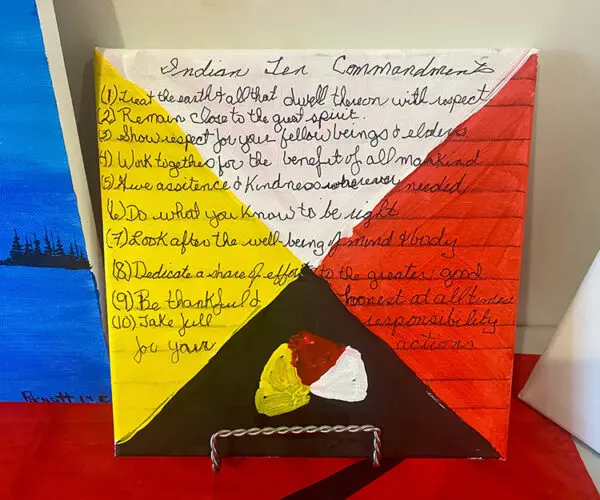 Indian Ten Commandments
(1) Treat the earth & all that dwell thereon with respect
(2) Remain close to the great spirit.
(3) Show respect for your fellow beings & elders
(4) Work together for the benefit of all mankind
(5) Give assitence & Kindness wherever needed
(6) Do what you know to be right
(7) Look after the well being of mind & body
(8) Dedicate a share of effort to the greater good
(9) Be thankful & honest at all times
(10) Take full responsibility
for your actions